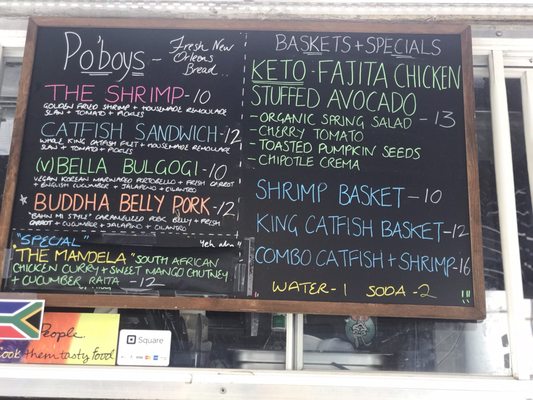 Po'boys - Fresh New
Orleans
Bread..
THE SHRIMP - 10
GOLDEN FRIED SHRIMP + HOUSEMADE REMOULADE
SLAW + TOMATO + PICKLES
CATFISH SANDWICH - 12
WHOLE KING CATFISH FILET + HOUSEMADE REMOULADE
SLAW + TOMATO + PICKLES
(V) BELLA BULGOGI - 10
VEGAN KOREAN MARINATED PORTOBELLO + FRESH CARROT
+ ENGLISH CUCUMBER + JALAPENO + CILANTRO
BUDDHA BELLY PORK - 12
"BAHN MI STYLE" CARAMELIZED PORK BELLY + FRESH
CARROT + CUCUMBER + JALAPENO + CILANTRO
"SPECIAL"
"THE MANDELA" SOUTH AFRICAN
CHICKEN CURRY + SWEET MANGO CHUTNEY
+ CUCUMBER RAITA - 12
BASKETS + SPECIALS
KETO - FAJITA CHICKEN
STUFFED AVOCADO - 13
- ORGANIC SPRING SALAD
- CHERRY TOMATO
- TOASTED PUMPKIN SEEDS
- CHIPOTLE CREMA
SHRIMP BASKET - 10
KING CATFISH BASKET - 12
COMBO CATFISH + SHRIMP - 16
WATER - 1 SODA - 2
People
Cook them tasty food
Square